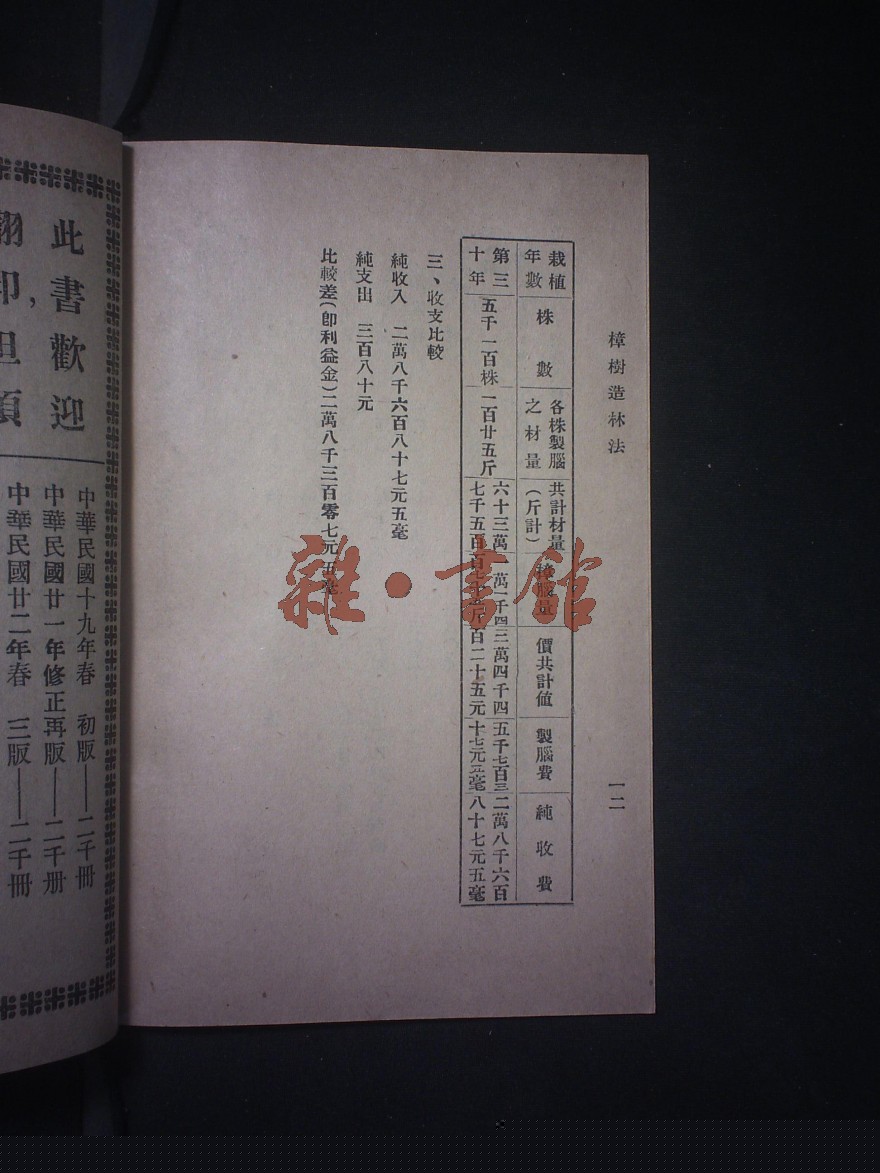 樟樹造林法
一二
栽植年數
株數
各株製腦之材量
共計材量(斤計)
樟腦量
價共計值
製腦費
純收費
第三十年
五千一百株
一百廿五斤
六十三萬七千五百斤
三萬四千四百二十五元
五千七百三十七元五毫
二萬八千六百八十七元五毫
三、收支比較
純收入 二萬八千六百八十七元五毫
純支出 三百八十元
比較差(卽利益金)二萬八千三百零七元五毫
此書歡迎
翻印,但須
中華民國十九年春 初版——二千冊
中華民國廿一年修正再版——二千册
中華民國廿二年春 三版——二千冊
雜·書館